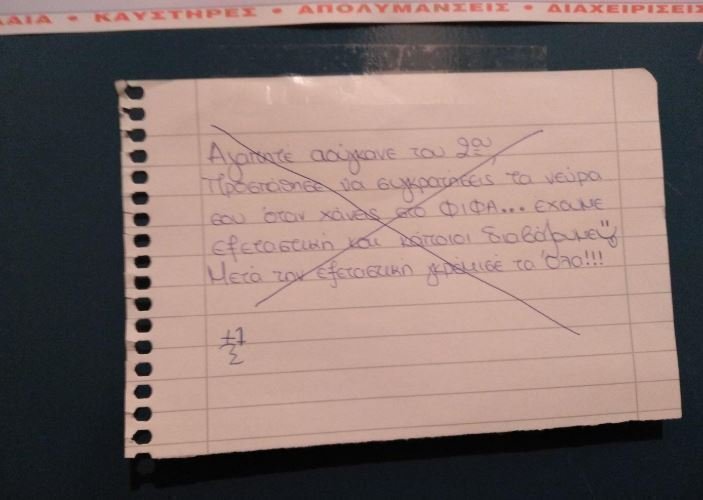 ΛΑΙΑ • ΚΑΥΣΤΗΡΕΣ • ΑΠΟΛΥΜΑΝΣΕΙΣ • ΔΙΑΧΕΙΡΙΣΕΙΣ
Αγαπητέ αούγκανε του 2ου,
Προσπάθησε να συγκρατήσεις τα νεύρα
σου όταν χάνεις στο ΦΙΦΑ... έχουμε
εξεταστική και κάποιοι διαβάζουμε
Μετά την εξεταστική γκρέμισέ το όλο!!!
+1
Σ